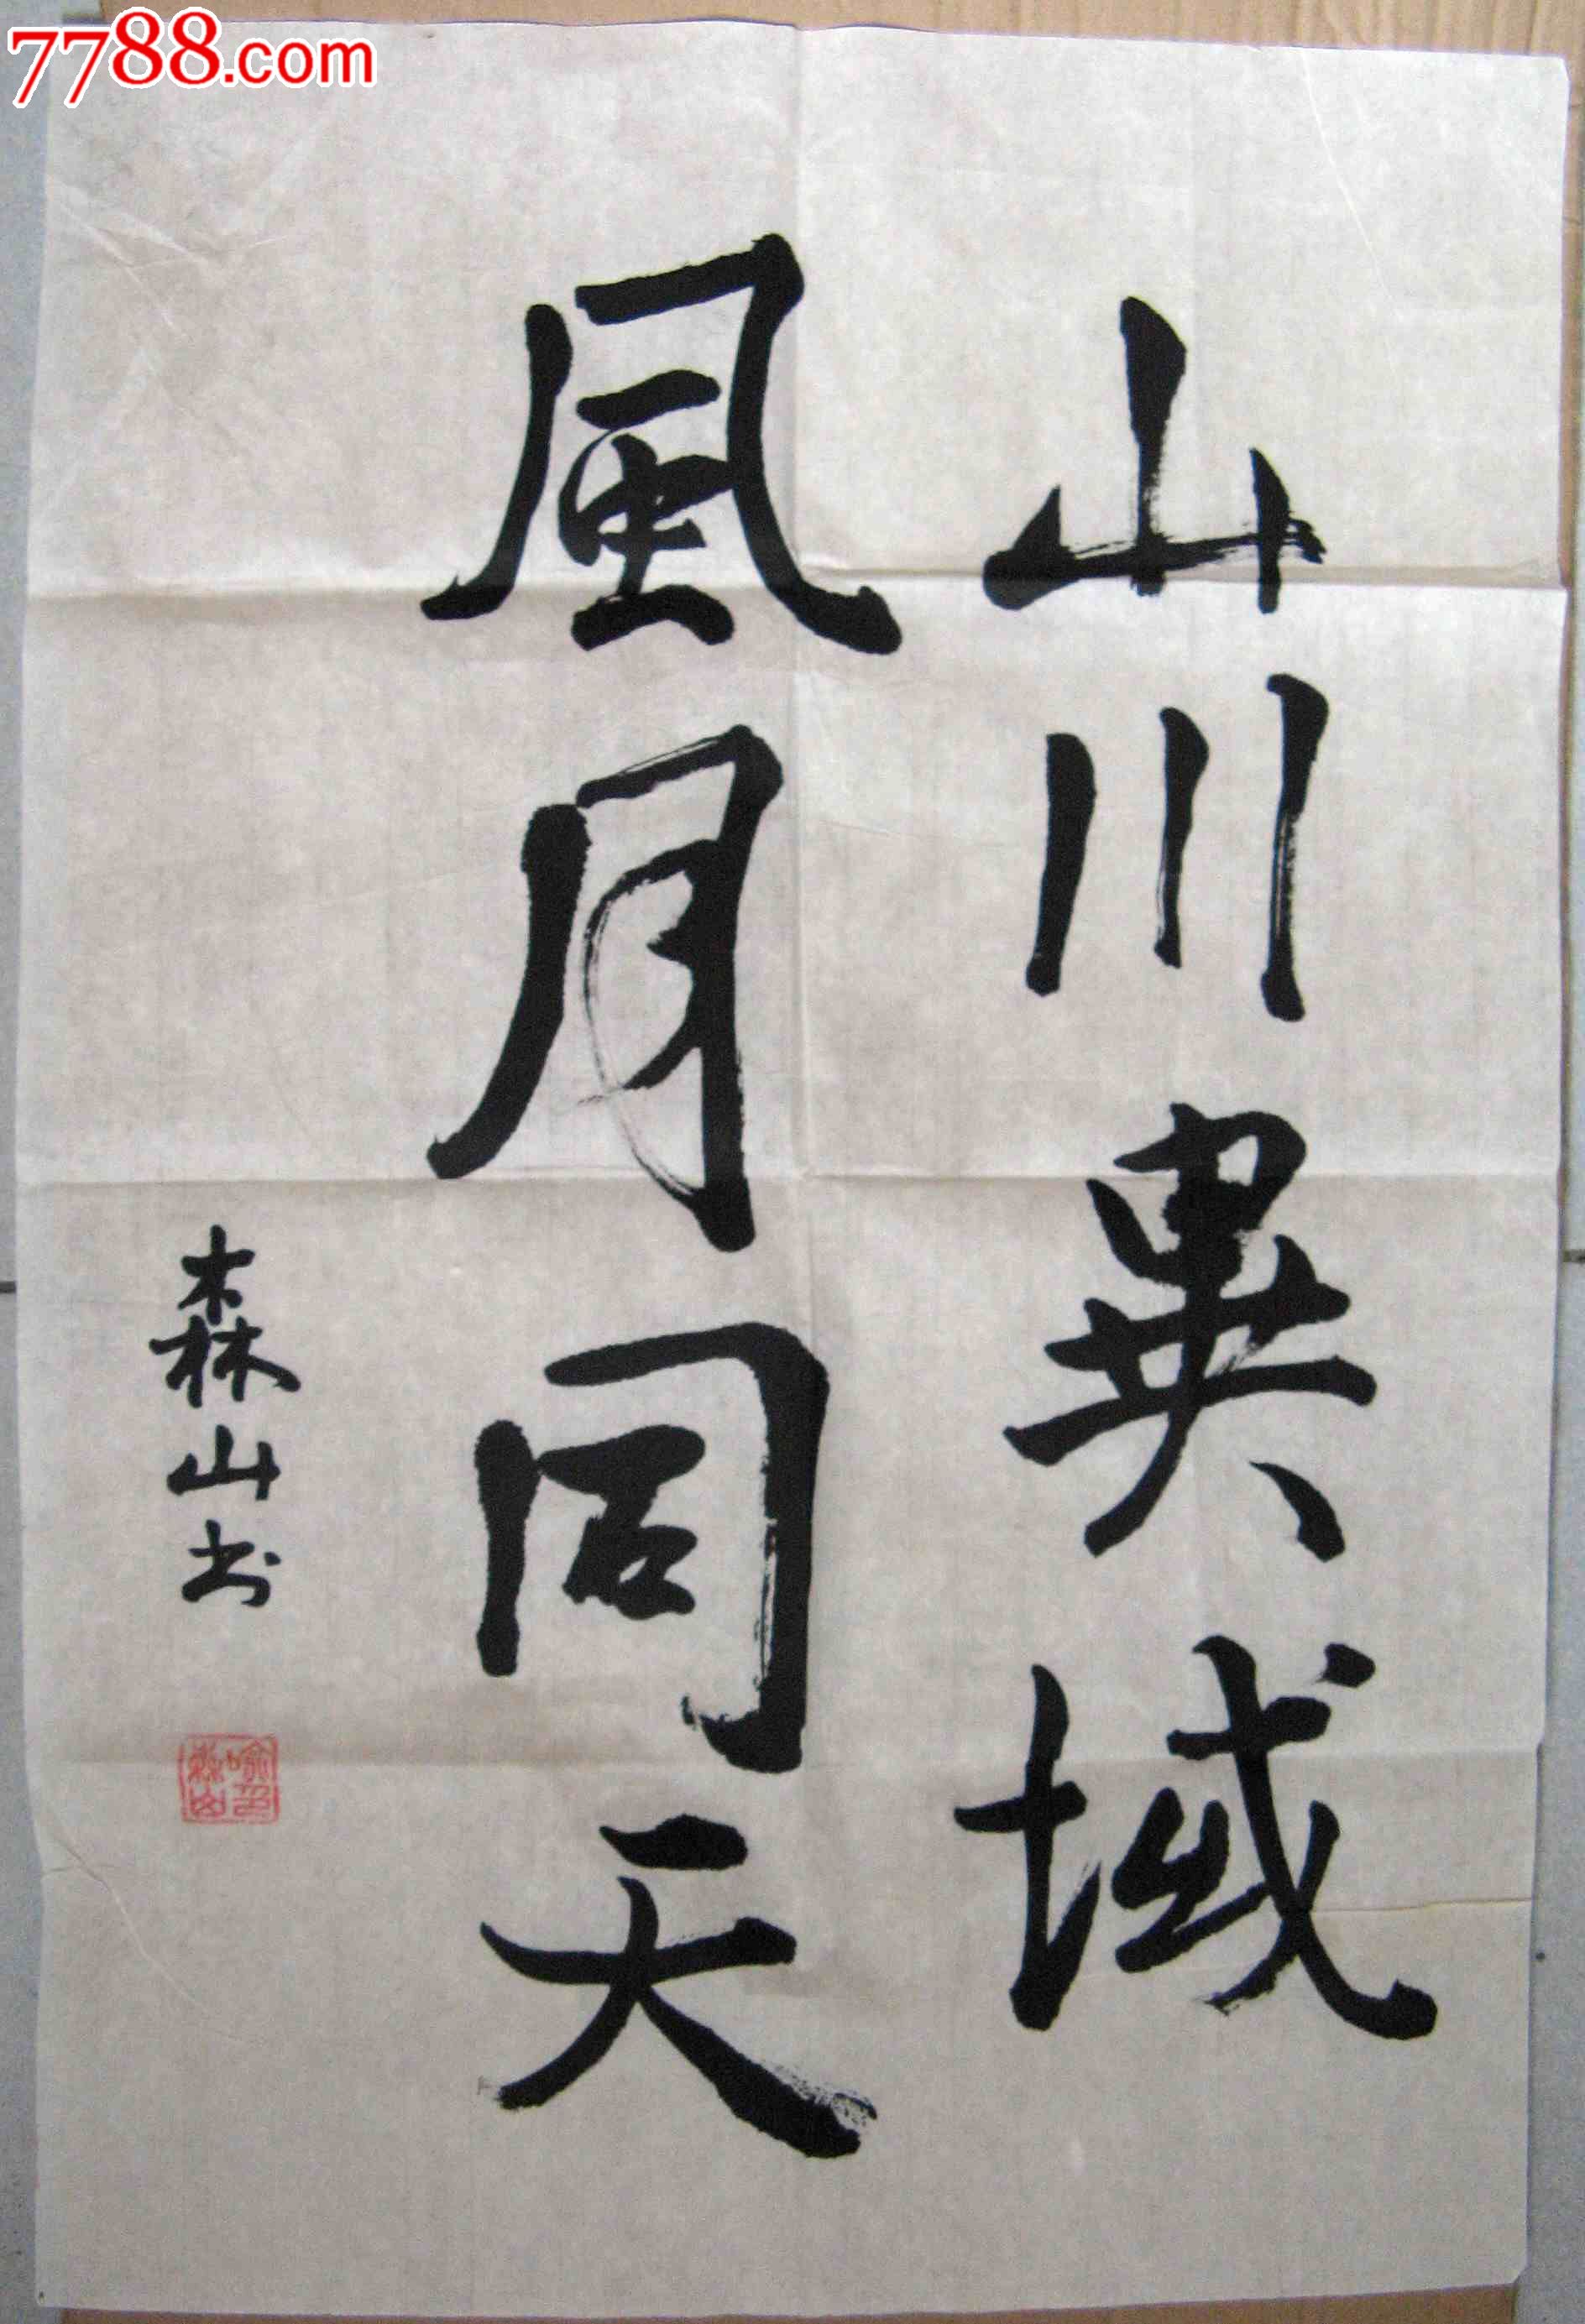 7788.com
山川異域
風月同天
森山书